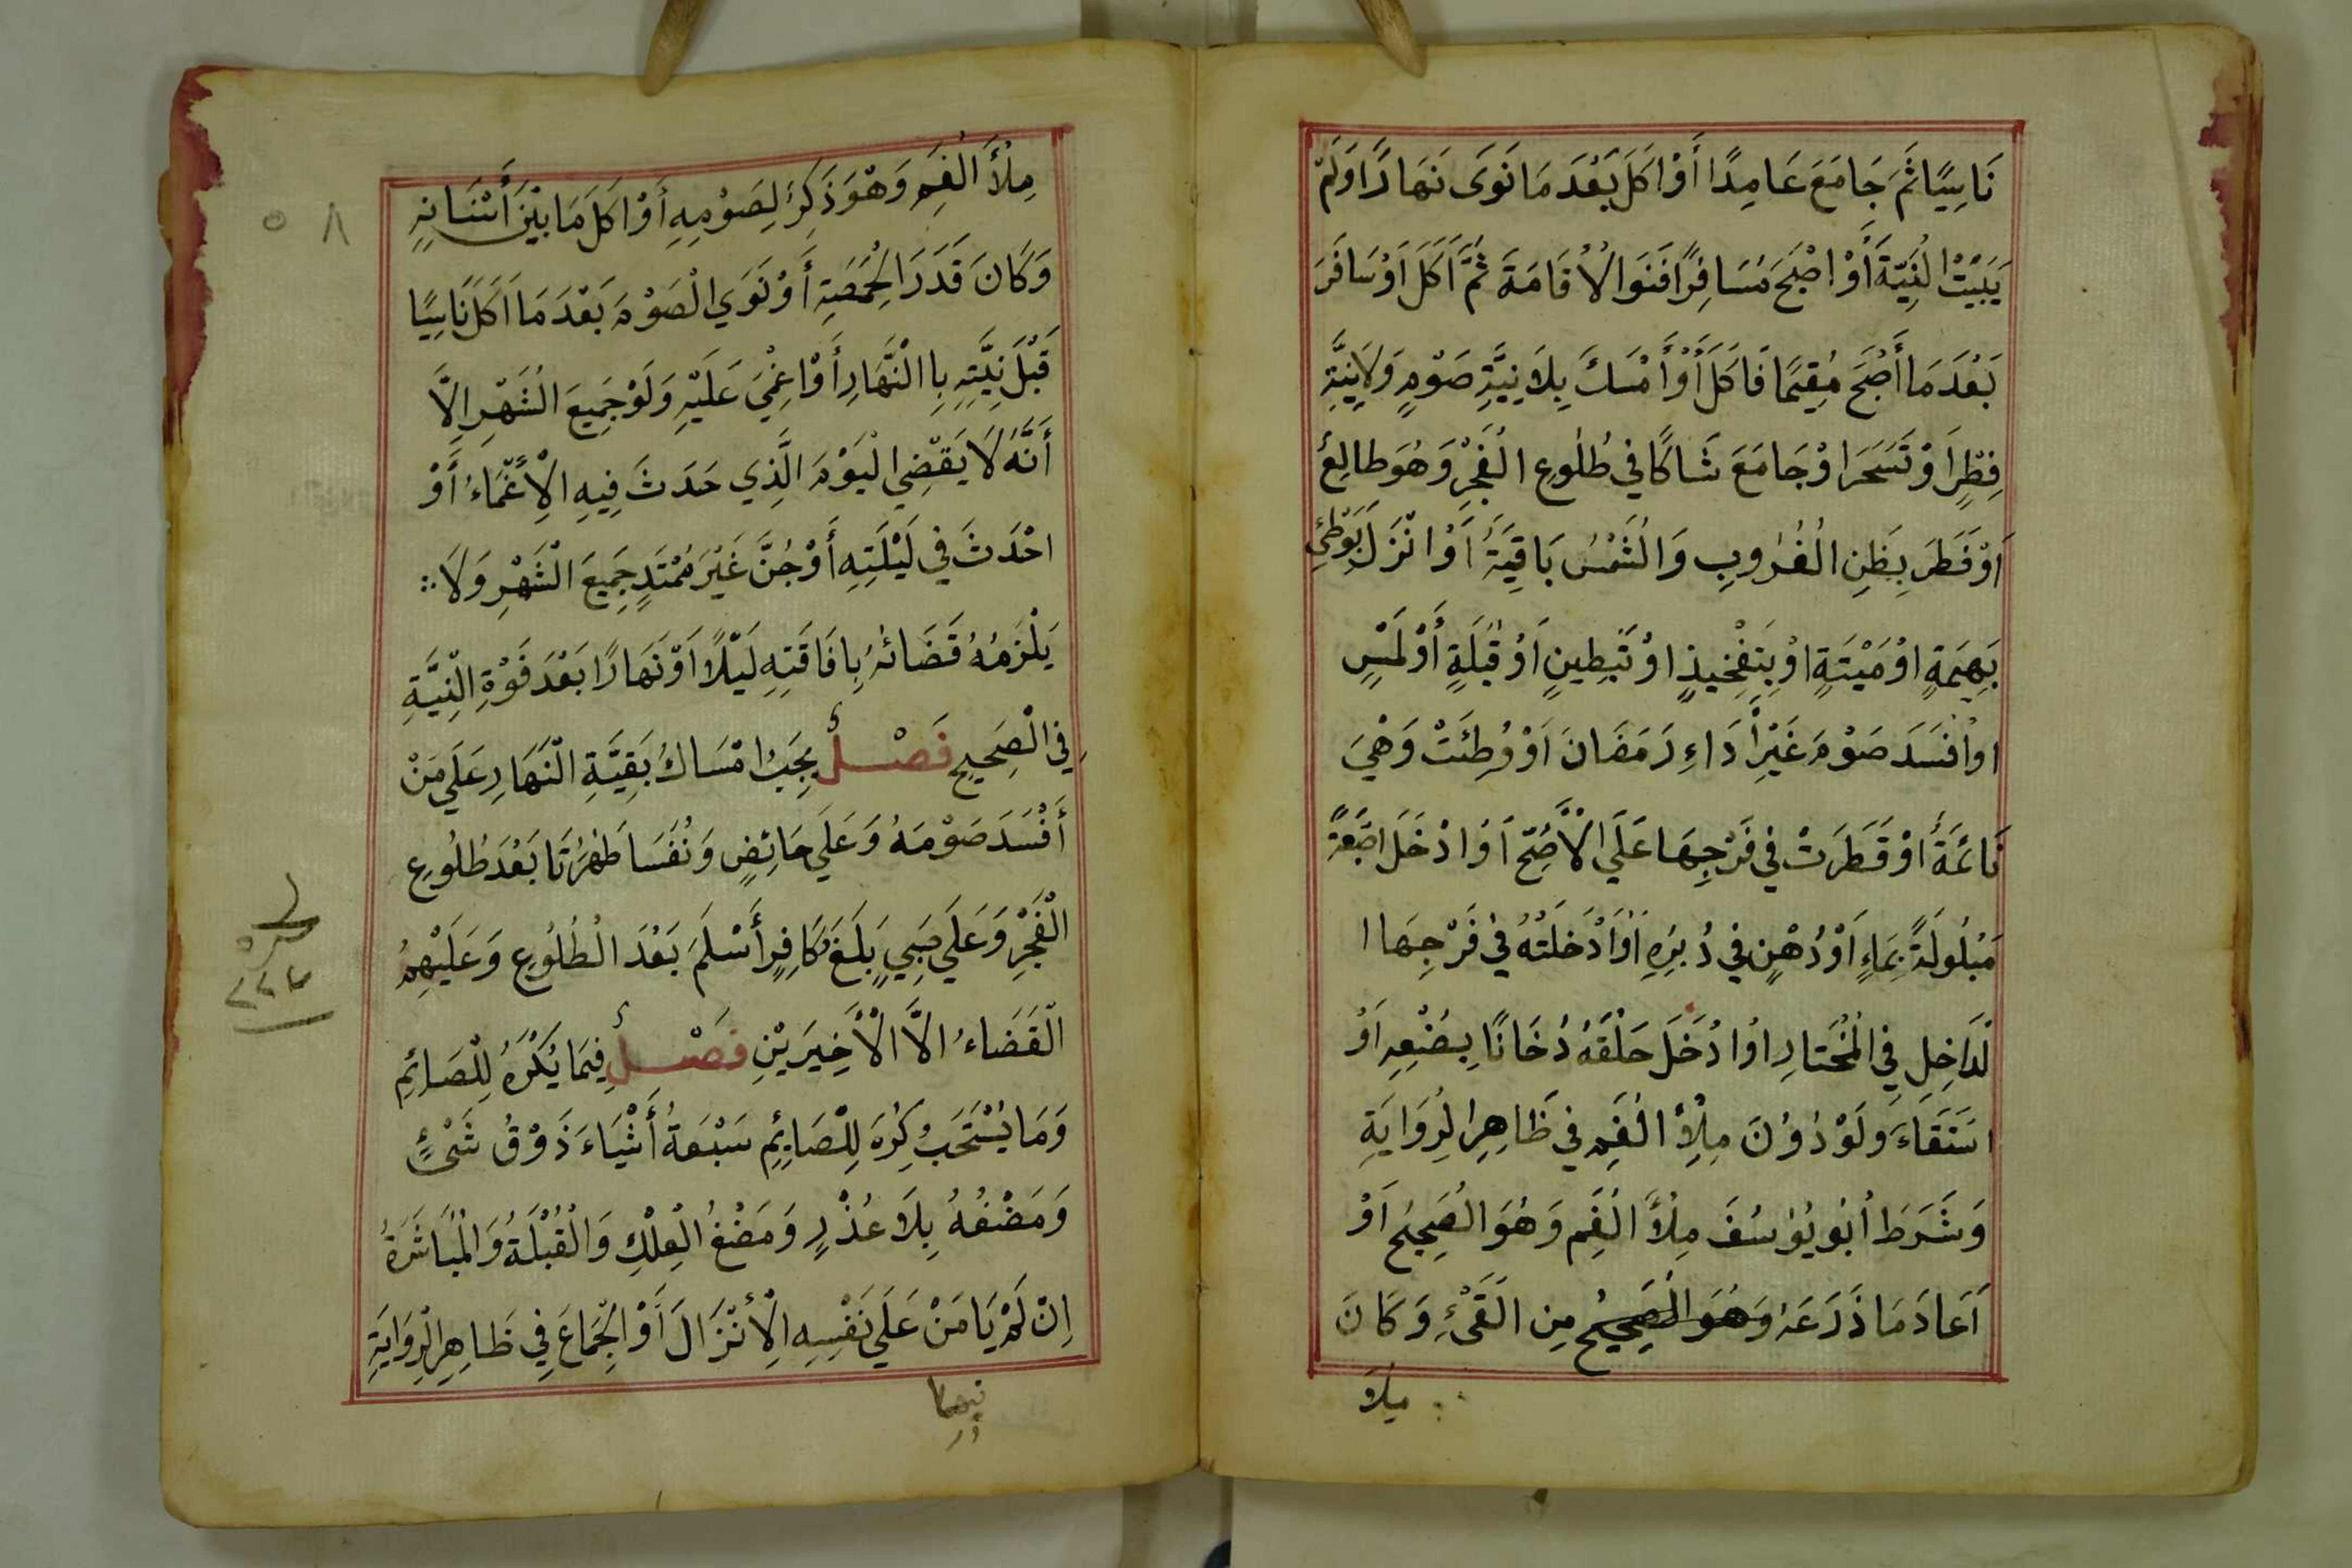 نَاسِيًا ثَمَ جَامَعَ عَامِدًا أَوْ اَكَلَ بَعْدَ مَا نَوَى نَهَارًا وَلَمْ
يَبَيِّتْ الْنِيَّةَ أَوْ اصْبَحَ مُسَافِرًا فَنَوَا الْاُقَامَةَ ثُمَّ اَكَلَ اَوْ سَافَرَ
بَعْدَ مَا أَصْبَحَ مُقِيمًا فَاَكَلَ أَوْ أَمْسَكَ بِلَا نِيَّةِ صَوْمٍ وَلَا نِيَّةِ
فِطْرٍ اَوْ تَسَحَرَ اوْ جَامَعَ شَاكًا في طُلُوعِ الْفَجْرِ وَهُوَ طالِعٌ
اَوْ فَطَرَ بِظَنِ الْغُرُوبِ وَالْشَمْسُ بَاقِيَةٌ اَوْ انْزَلَ بِوَطْئِ
بَهِيمَةٍ اوْ مَيْتَةٍ اوْ بِتَفْخيذٍ اوْ تَبِطينٍ اَوْ قُبْلَةٍ أَوْ لَمْسٍ
اوْ اَفْسَدَ صَوْمَ غَيْرِ اَدَاءِ رَمَضَانَ اَوْ وُطِئَتْ وَهْيَ
نَائمَةٌ أَوْ قَطَرَتْ في فَرْجِهَا عَلَى الْأَصَحِّ اَوْ ادْخَلَ اصْبَعَهُ
مَبْلُولَةً بِمَاءٍ اَوْ دُهْنٍ في دُبُرِهِ اَوْ اَدْخَلَتْهُ في فَرْجِهَا ا
لْدَاخِلِ فِي الْمُخْتَارِ اوْ ادْخَلَ حَلْقَهُ دُخَانًا بِصُنْعِهِ اَوْ
اسْتَقَاءَ وَلَوْ دُوْنَ مِلْأِ الْفَمِ في ظَاهِرِ الْرِوَايَةِ
وَشَرَطَ اُبُو يُوْسُفَ مِلْأَ الْفَمِ وَهُوَ الْصَحِيحُ اَوْ
اَعَادَ مَا ذَرَعَهُ وَهُوَ الْصَحِيحُ مِن الَقَيْءِ وَكَانَ
ملأ
٥ ٨
مِلْأَ الْفَمِ وَهْوَ ذَكِرٌ لِصَوْمِهِ أَوْ اَكَلَ مَا بَيْنَ أَسْنَانِهِ
وَكَانَ قَدَرَ الْحِمَّصَةِ أَوْ نَوَي الْصَوْمَ بَعْدَ مَا اَكَلَ نَاسِيًا
قَبْلَ نِيَّتِهِ بِا الْنَّهَارِ أَوْ اغْمِيَ عَلَيْهِ وَلَوْ جَمِيعَ الْشَهْرِ اِلَّا
أَنَّهُ لَا يَقْضِي الْيَوْمَ الَّذِي حَدَثَ فِيهِ الْاِغْمَاءُ أَوْ
احْدَثَ في لَيْلَتِهِ أَوْ جُنَّ غَيْرَ مُمْتَدٍ جَمِيعَ الْشَهْرِ وَلَا
يَلْزَمُهُ قَضَائهُ بِافَاقَتِهِ لَيْلًا اَوْ نَهَارًا بَعْدَ فَوْةِ الْنِيَّةِ
فِي الْصَحِيحِ فَصْلٌ يَجِبُ امْسَاكُ بَقِيَّةِ الْنَهَارِ عَلَي مَنْ
أَفْسَدَ صَوْمَهُ وَعَلَي حَائِضٍ وَنُفَسَا طَهُرَتَا بَعْدَ طُلُوعِ
الْفَجْرِ وَعَلَي صَبِيٍ بَلَغَ وَكَافِرٍ أَسْلَمَ بَعْدَ الْطُلُوعِ وَعَلَيْهِمُ
الْقَضَاءُ الاَّ الْأَخِيرَيْنِ فَصْلٌ فِيمَا يَكْرَهُ لِلْصَائِمِ
وَمَا يُسْتَحَبُ كِرُهَ لِلْصَائِمِ سَبْعَةُ أَشْيَاءَ ذَوْقُ شَيْئٍ
وَمَضْغُهُ بِلَا عُذْرٍ وَمَضْغُ الْعِلْكِ وَالْقُبْلَةُ وَالْمُبَاشَرَةُ
اِنْ لَمْ يَامَنْ عَلَي نَفْسِهِ الْاِنْزَالَ أَوْ الْجِمَاعَ فِي ظَاهِرِ الْرِوَايَةِ